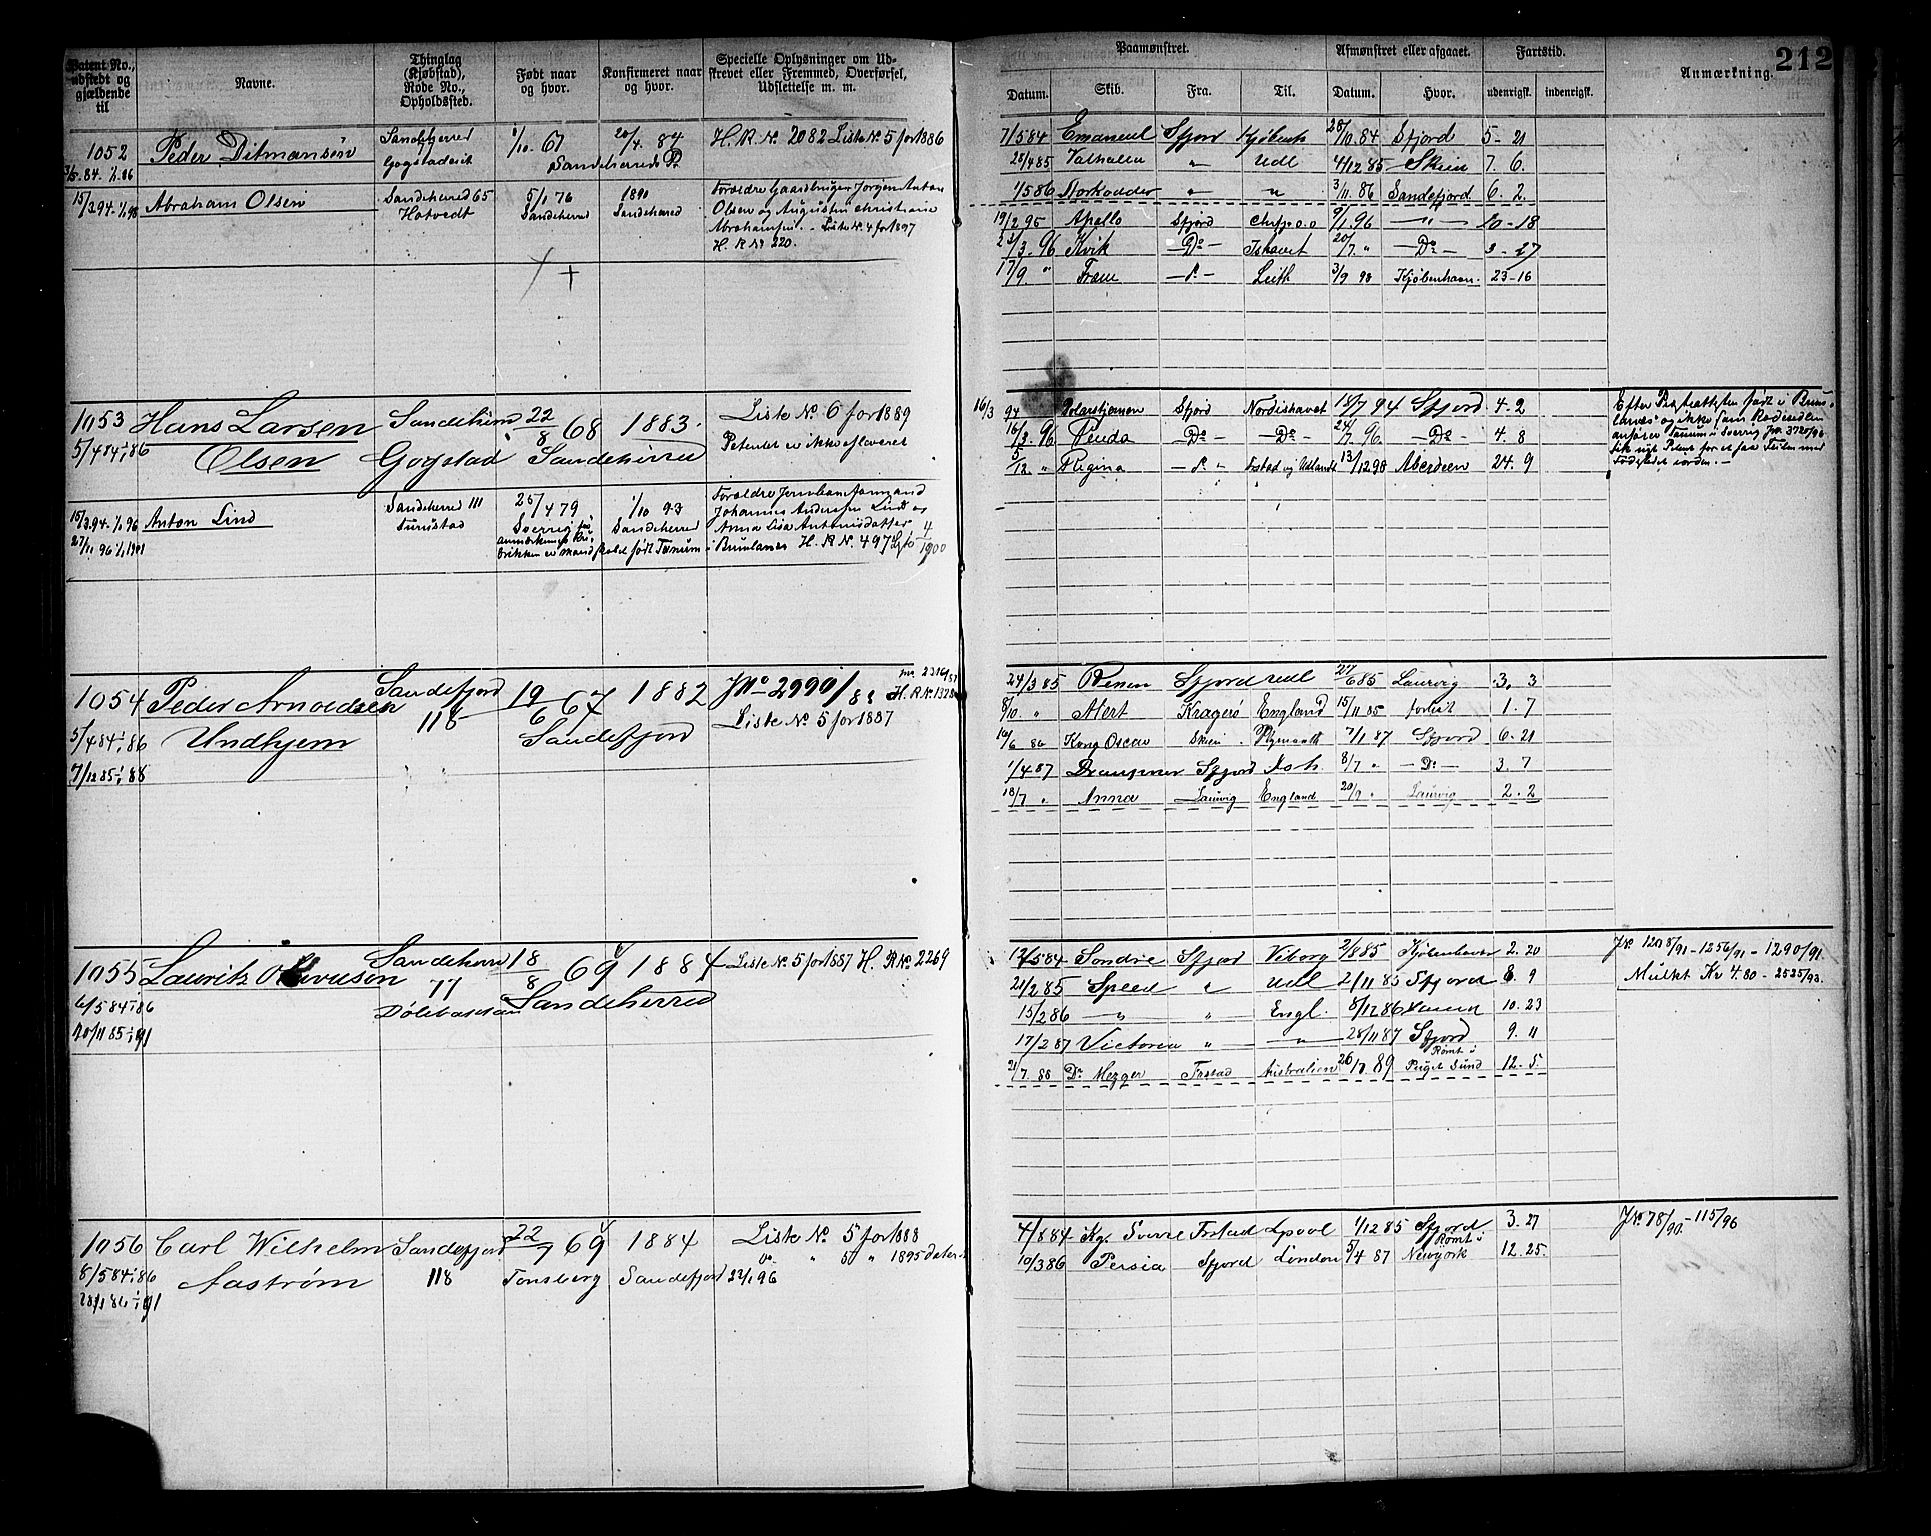 Patent No., udstedt og gjældende til
Navne.
Thinglag (Kjøbstad), Rode No., Opholdssted.
Født naar og hvor.
Konfirmeret naar og hvor.
Specielle Oplysninger om Udskrevet eller Fremmed, Overførsel, Udslettelse m. m.
Paamønstret.
Afmønstret eller afgaaet.
Fartstid.
Anmærkning.
212
Datum. Skib. Fra. Til. Datum. Hvor. udenrigsk. indenrigsk.
1052 Peder Ditmansen Sandeherred 1/10 67 20/4 84 H. R. No. 2082 Liste No. 5 for 1886
Sandeherreds
7/5 84 Emanuel Sfjord 28/10 84 Sfjord 5 - 21
28/4 85 Valhalla " Udl 4/12 85 Skien 7. 6.
1/5 86 " " 3/11 86 Sandefjord 6. 2.
15/3 94. 1/1 98 Abraham Olsen Sandeherred 65 5/1 76 1891 Forældre Gaardbruger Jørgen Anton
Hotvedt Sandeherred Sandeherred Olsen og Christiane
Abrahamsen. Liste No. 4 for 1897
H. R No 220.
19/2 95 Apollo Sfjord 9/1 96 — " — 10 - 18
23/3 96 Kvik — Do — Ishavet 20/7 " — Do — 3 - 27
17/9 " Fram Leith 3/9 98 Kjøbenhavn. 23 - 16
1053 Hans Larsen Sandeherred 22/8 68 1883. Liste No. 6 for 1889
5/4 84 1/1 86 Olsen Gogstad Sandeherred Patentet er ikke afleveret
16/3 94 Polarstjernen Sfjord Nordishavet 18/7 94 Sfjord 4. 2
16/3 96 — Do — — Do — 24/7 96 — Do — 4. 8
5/12 " Regina Frstad og Udlandet 13/12 98 Aberdeen 24. 9
født i Brunlanæs og ikke som
Tanum i Sverrig
15/3 94. 1/1 96 Anton Lind Sandeherred 111 25/4 79 1/10 93 Forældre
27/11 96 1/1 1901 Sverrig Sandeherred Johannes Andersen Lind og
Anna Lisa Antonisdatter
født Tanum i Brunlanes H. R No. 497
1054 Peder Arnoldsen Sandefjord 19/6 67 1882 J No 2990/83
Undhjem 118 Sandefjord Liste No. 5 for 1887
5/4 84 1/1 86
7/12 85 1/1 88
24/3 85 Sfjord Udl 27/6 85 Laurvig 3. 3
8/10 " Alert Kragerø England 15/11 85 forlist 1. 7
16/6 86 Kong Oscar Skien Plymouth 7/1 87 Sfjord 6. 21
1/4 87 Draupner Sfjord 8/7 " — Do — 3. 7
18/7 " Anna Laurvig England 20/9 " Laurvig 2. 2
1055 Lauritz Olavesen Sandeherred 18/8 69 1884 Liste No. 5 for 1887 H. R No 2269
6/5 84 1/1 86 77 Sandeherred
20/11 85 1/1 91
12/5 84 Søndre Sfjord Viborg 2/8 85 Kjøbenhavn 2. 20
21/2 85 Speed " Udl 2/11 85 Sfjord 8. 9
15/2 86 — " — " Engl. 8/12 86 10. 23
17/2 87 Victoria " — " — 28/11 87 Sfjord 9. 11
21/7 88 Dr Mezger Frstad Australien 26/10 89 Rømt i Puget Sund 12. 5
J No 1208/91 - 1256/91 - 1290/91.
Mulkt Kr 4.80 - 2525/93.
1056 Carl Wilhelm Sandefjord 22/7 69 1884 Liste No. 5 for 1888
8/5 84 1/1 86 Aastrøm 118 Tønsberg Sandefjord Do. " 5 " 1895 dateret
28/1 86 1/1 91 22/1 96
4/8 84 Kg. Sverre Frstad Lpool 1/12 85 Sfjord 3. 27
10/3 86 Persia Sfjord London 5/4 87 Rømt i Newyork 12. 25.
J No 78/90. - 115/96